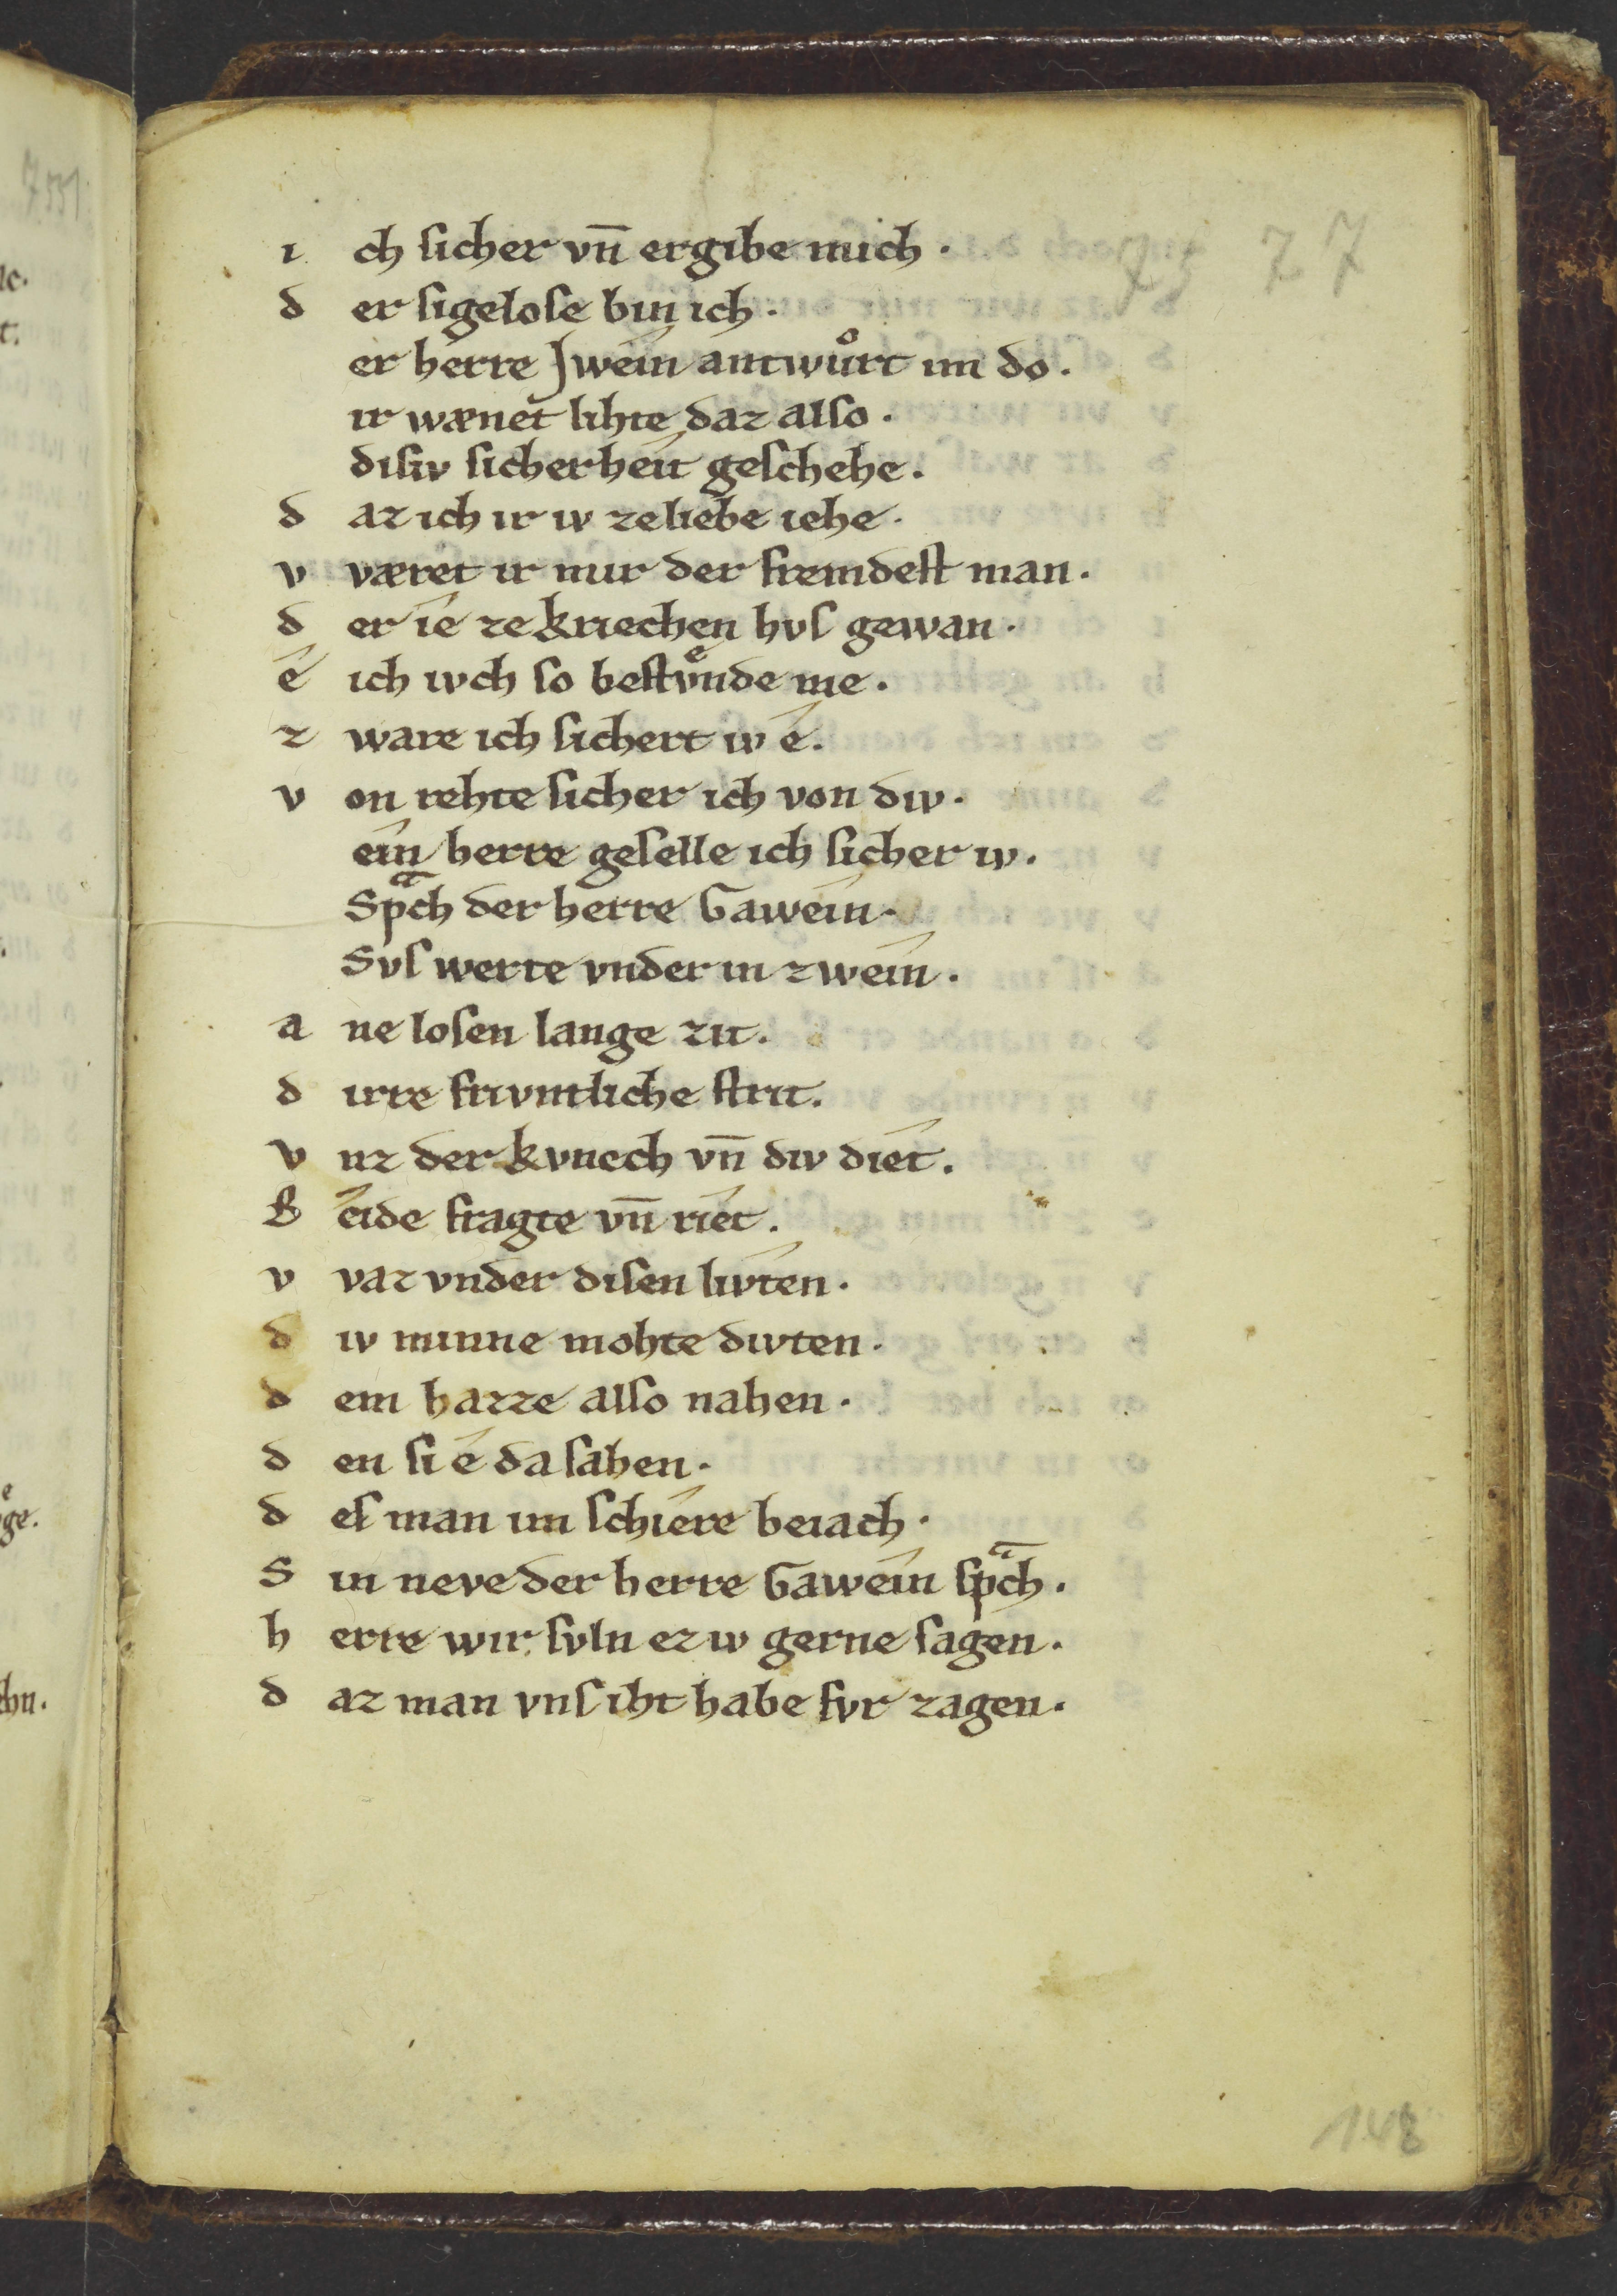 75 27
i ch sicher vn̄ ergibe mich ·
d er sigelose bin ich ·
er herre Jwein antwůrt im do .
ir wænet lihte daz also .
disiv sicherheit geschehe .
d az ich ir iv zeliebe iehe .
v været ir mir der fremdest man .
d er ie ze kriechen hvs gewan .
é ich ivch so bestv̊nde me .
z ware ich sichert iv é .
v on rehte sicher ich von div .
ein herre geselle ich sicher iv .
Spͣch der herre Gawein .
Svs werte vnder in zwein .
a ne losen lange zit .
d irre frivntliche strit .
v nz der kvnech vn̄ div diet .
B eide fragte vn̄ riet .
v vaz vnder disen livten .
d iv minne mohte divten .
d em hazze also nahen .
d en si é da sahen .
d es man im schiere beiach .
S in neve der herre Gawein spͣch .
h erre wir svln ez iv gerne sagen .
d az man vns iht habe fvr zagen .
148